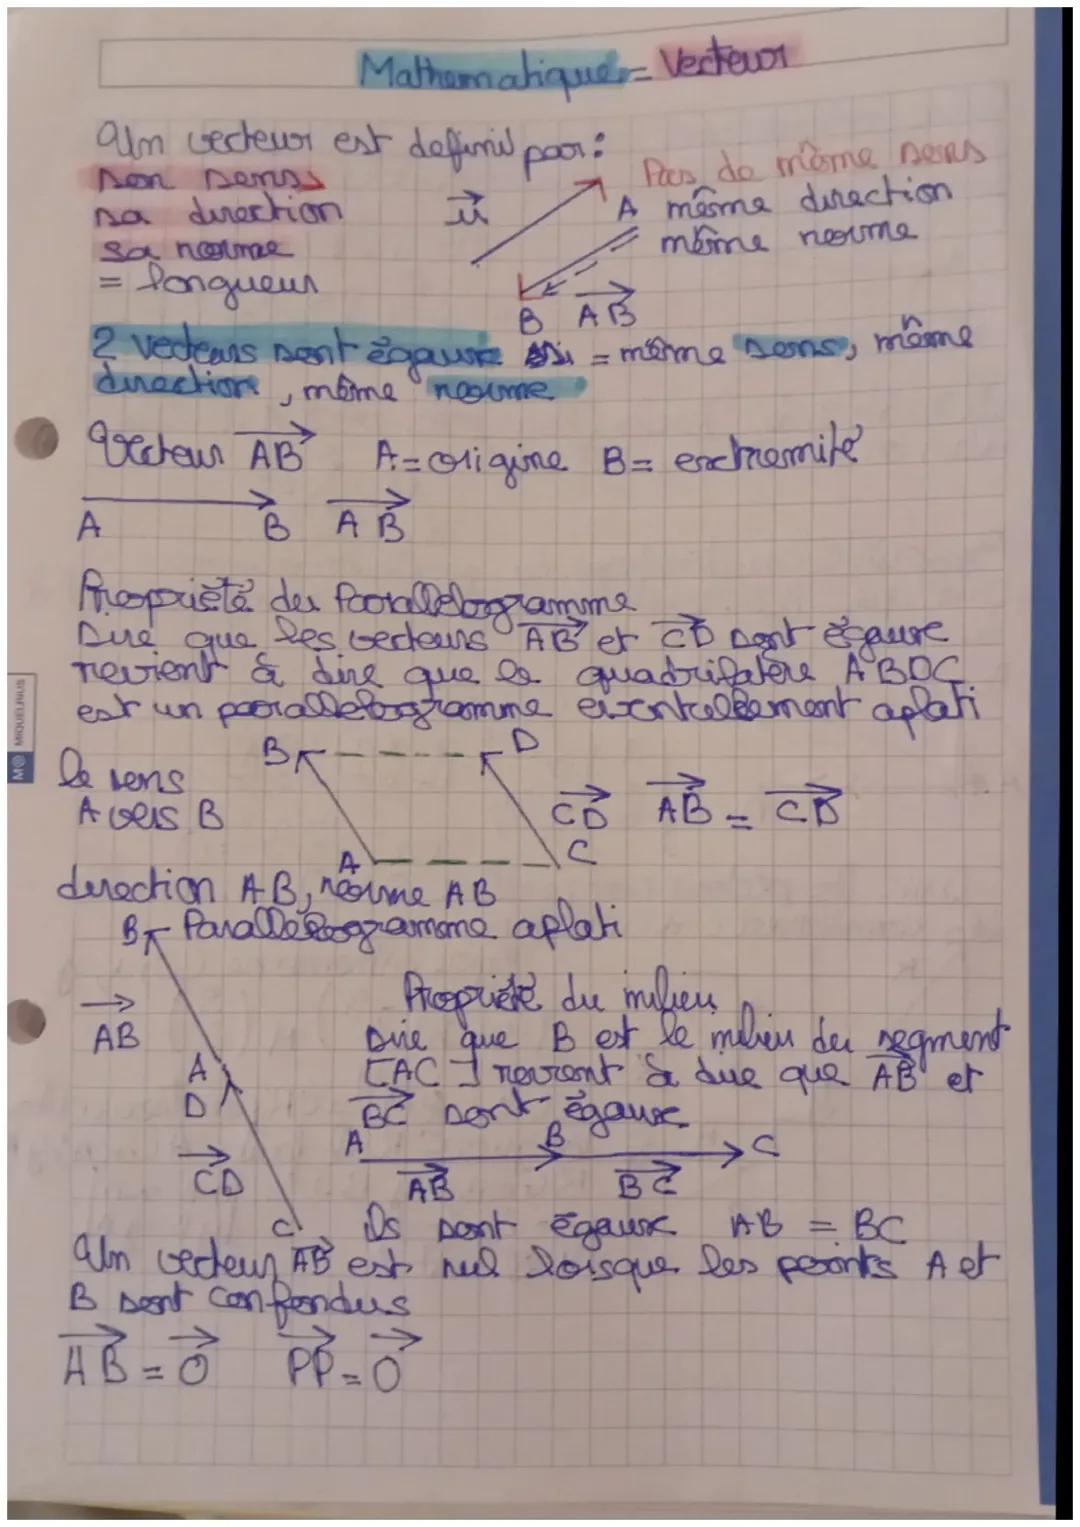 Mathematique = Vecteur
Un vecteur est definit par :
son sens
sa direction
sa norme
= longueur
u
Pas de même sens
A même direction
même norme
B AB
2 vecteurs sont égaux si = même sens, même
direction, même norme
Vecteur AB A = origine B = exctremité
A B AB
Propriété du Parallelogramme
Dire que les vecteurs AB et CD sont égaux
revient à dire que le quadrilatère ABDC
est un parallelogramme eventuellement aplati
B D
le sens
A vers B
CD AB = CD
A C
direction AB, norme AB
B Parallélogramme aplati
Propriété du milieu
AB
Dire que B est le milieu du segment
[AC] revient à dire que AB et
BC sont égaux
A
D
A B C
CD
AB BC
C
ils sont égaux AB = BC
Un vecteur AB est nul lorsque les points A et
B sont confondus
AB = 0 PP = 0
M MIQUELRIUS